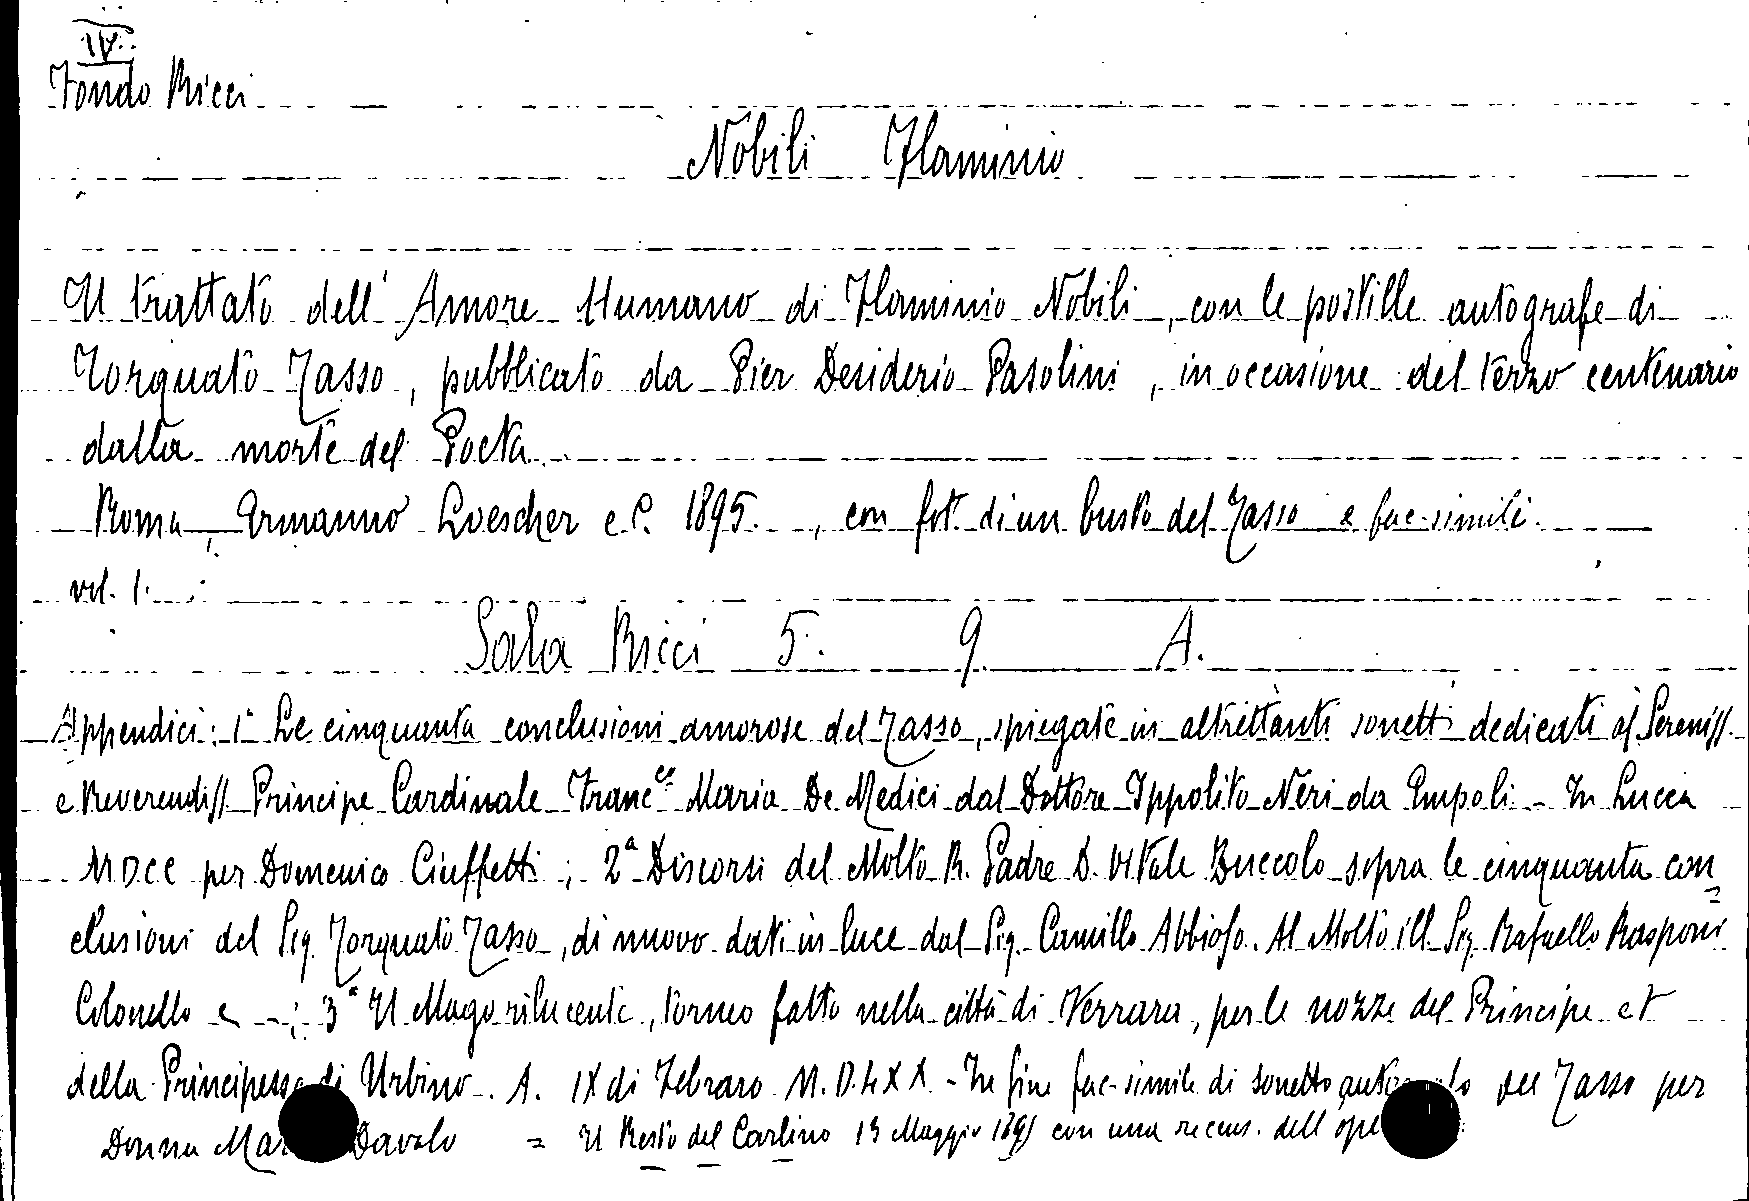 IV.
Fondo Ricci
Nobili Flaminio
Il trattato dell' Amore Humano di Flaminio Nobili, con le postille autografe di
Torquato Tasso, pubblicato da Pier Desiderio Pasolini, in occasione del terzo centenario
dalla morte del Poeta.
Roma, Ermanno Loescher e C. 1895., con fot. di un busto del Tasso e fac-simili.
vol. 1.
Sala Ricci 5. 9. A.
Appendici: 1ª Le cinquanta conclusioni amorose del Tasso, spiegate in altrettanti sonetti dedicati al Sereniss.
e Reverendiss Principe Cardinale Francᶜᵒ Maria De Medici dal Dottore Ippolito Neri da Empoli - In Lucca
MDCC per Domenico Ciuffetti; 2ª Discorsi del Molto R. Padre D. Vitale Zuccolo sopra le cinquanta con=
clusioni del Sig. Torquato Tasso, di nuovo dati in luce dal Sig. Camillo Abbioso. Al Molto ill. Sig. Rafaello Rasponi
Colonello e -; 3ª Il Mago rilucente, torneo fatto nella città di Ferrara, per le nozze del Principe et
della Principessa di Urbino. A. IX di Febraro M.D.LXX. - In fine fac-simile di sonetto del Tasso per
Donna Davalo = Il Resto del Carlino Maggio con una recens. dell'